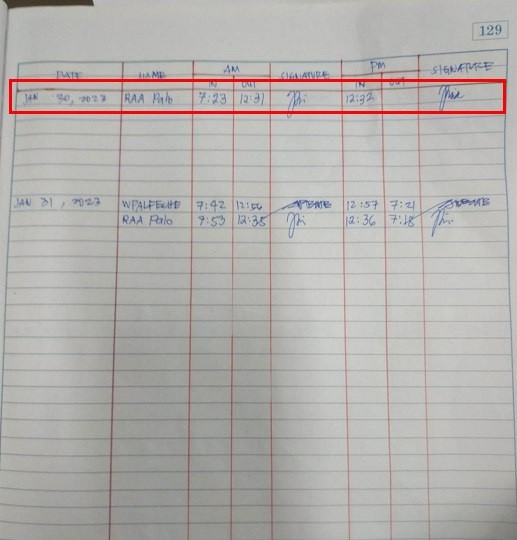 129
DATE NAME AM SIGNATURE PM SIGNATURE
IN OUT IN OUT
JAN 30, 2023 RAA Palo 7:23 12:31 12:32
JAN 31, 2023 WPALPECHE 7:42 12:56 12:57 7:21
RAA Palo 12:35 12:36 7:18